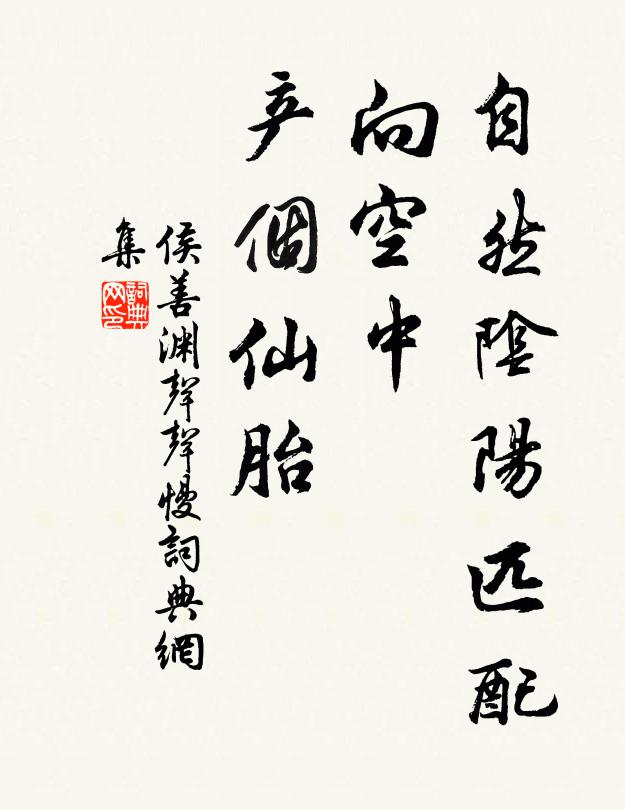 自然陰陽匹配
向空中
产個仙胎
侯善渊聲聲慢詞典網
集
詞典
网印